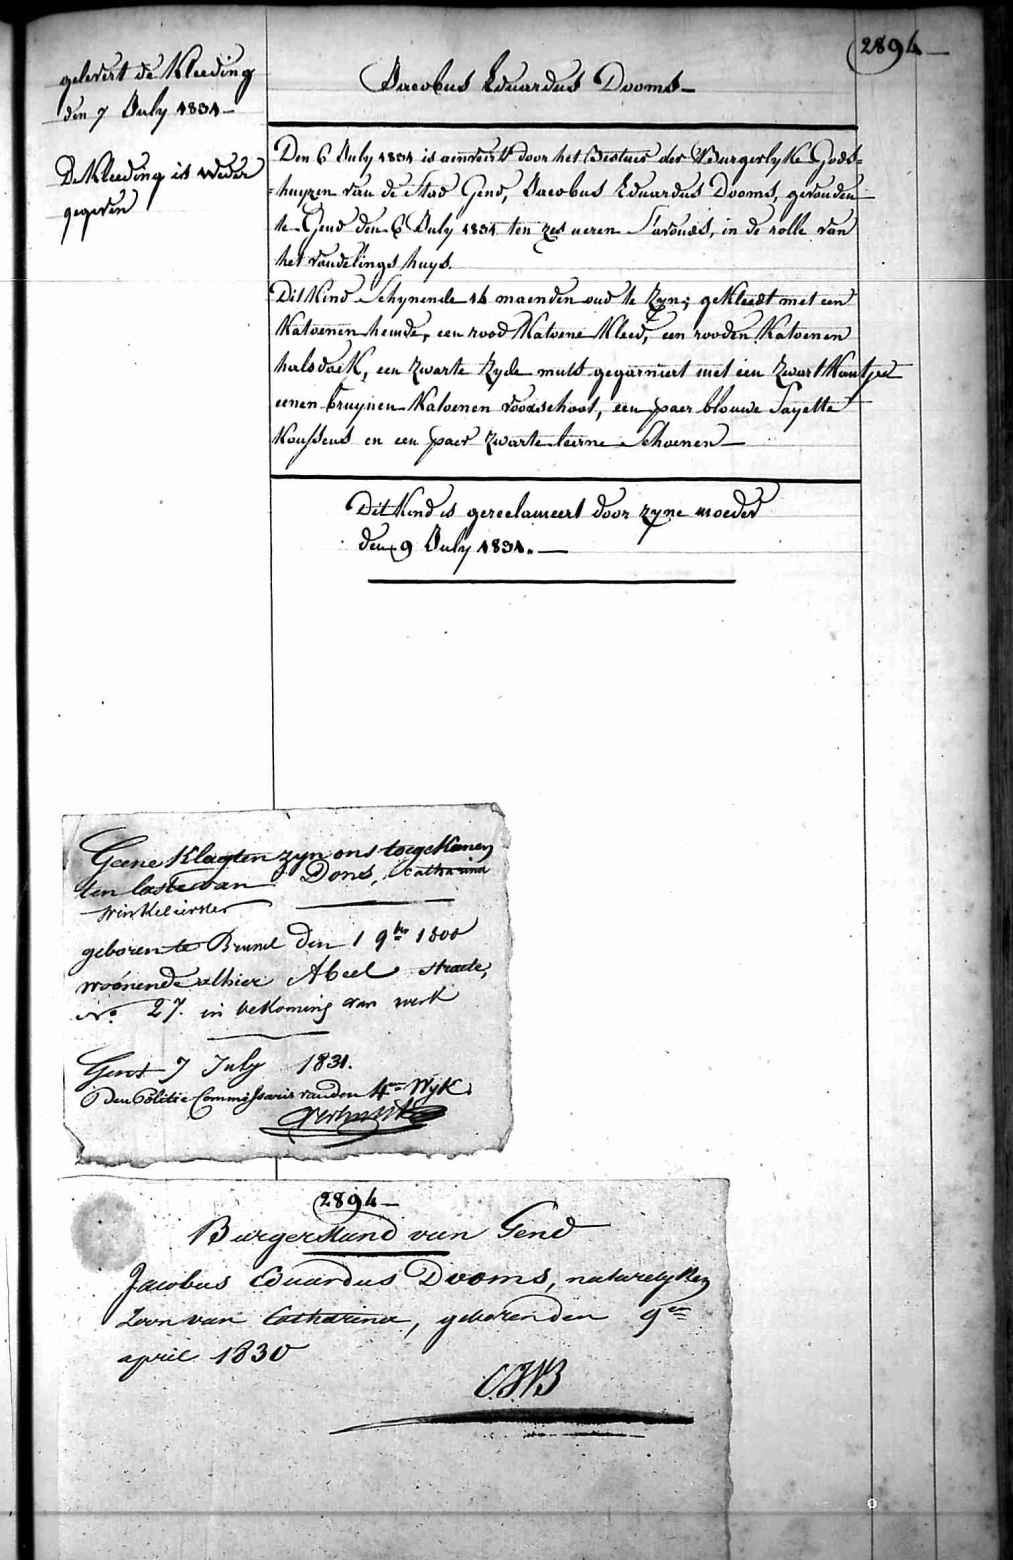 2894
gelevert de Kleeding
den 7 July 1831
De Kleeding is weder
gegeven
Jacobus Eduardus Dooms
Den 6 July 1831 is aenveirt door het Bestuer der Burgerlyke Gods=
=huyzen van de Stad Gend, Jacobus Eduardus Dooms, gevonden
te Gend den 6 July 1831 ten zes ueren s'avonds, in de rolle van
het vondelings huys.
Dit Kind schynende 14 maenden oud te zyn; gekleedt met een
Katoenen hemde, een rood Katoene Kleed, een rooden Katoenen
halsdoek, een zwarte zyde muts gegarniert met een zwart Kantjen
eenen bruynen Katoenen voorschoot, een paer blouwe Sayette
Koussens en een paer zwarte leirne Schoenen
Dit Kind is gereclameert door zyne moeder
den 9 July 1831.
Geene Klagten zyn ons toegekomen
ten laste van Dons, Catharina
Winkelierster
geboren te Brussel den 1 9bre 1800
woónende alhier Abeel straete,
No. 27. in bekoming van werk
Gent 7 July 1831.
Den Politie Commissaris van den 4en Wyk.
2894
Burgerstand van Gend
Jacobus Eduardus Dooms, natuerlyken
Zoon van Catharina, geboren den 9en
april 1830